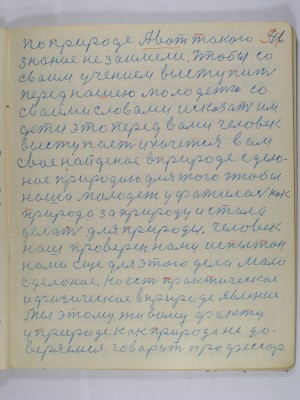 по природе. А вот такого
знание не заимели. Чтобы со
своим учением выступить
перед нашею молодежью со
своими словами и сказать им
дети это перед вами человек
выступает и хочется вам
свое найденое в природе сдело-
ное природию для того чтобы
наша молодеж ухватилась как
природа за природу и стала
делать для природы. Человек
наш проверен нами испытон
нами еще для этого дела мало
сделоное. Но ест практическое
и физическое в природе явление.
Мы этому живому факту
у природе как природа не до-
веряемся. говарит профессор